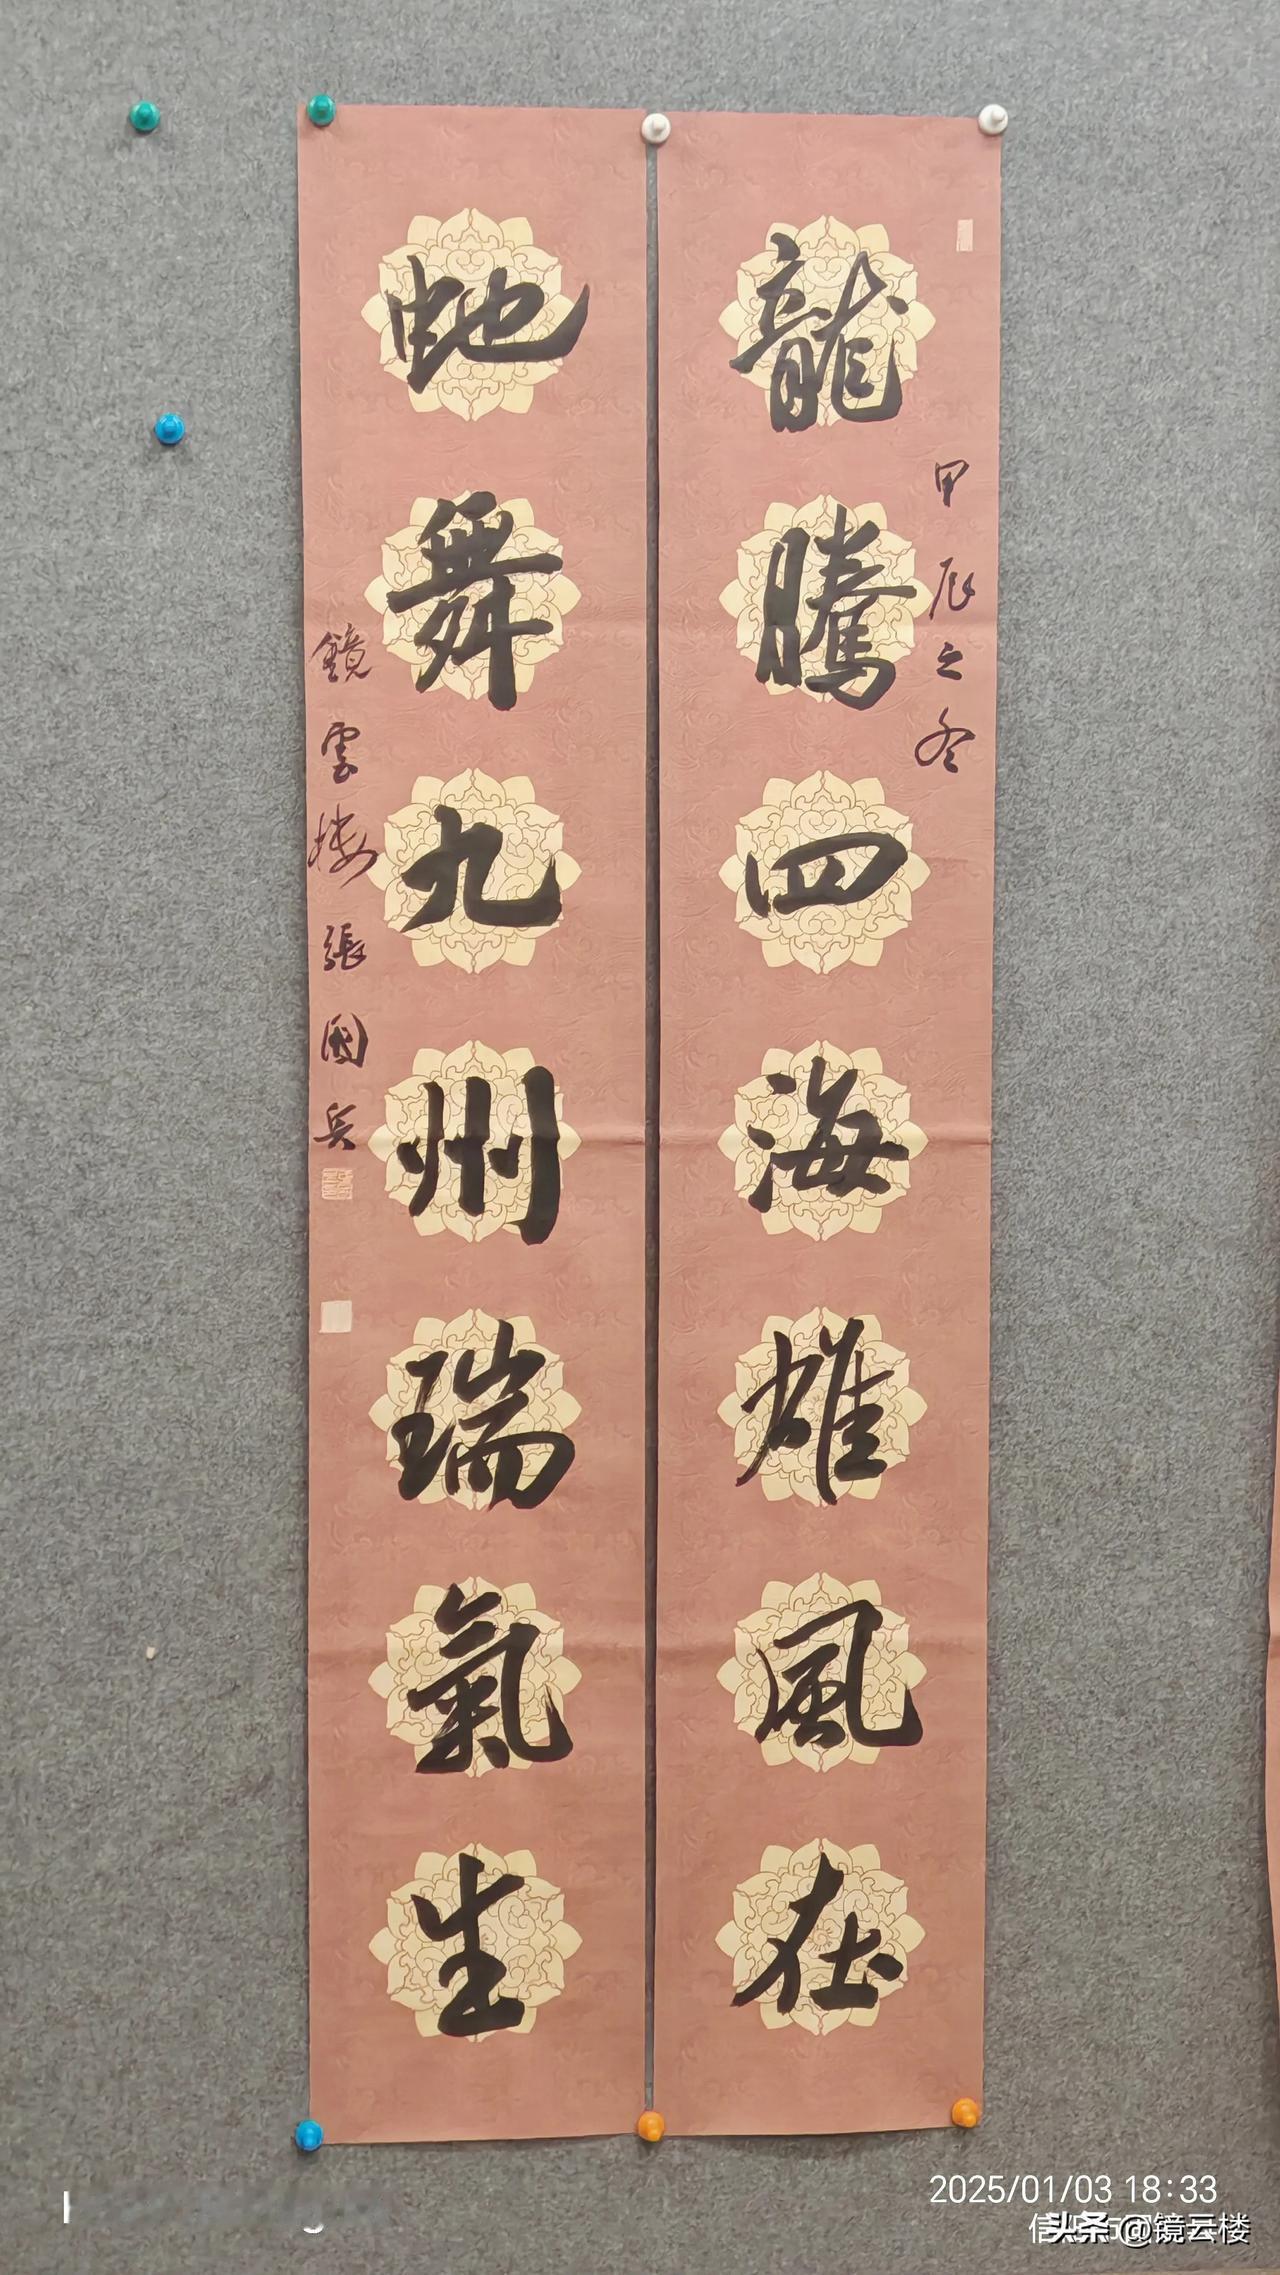 龍騰四海雄風在
甲辰之冬
虵舞九州瑞氣生
鏡雲楼張國兵
2025/01/03 18:33
头条 @镜云楼